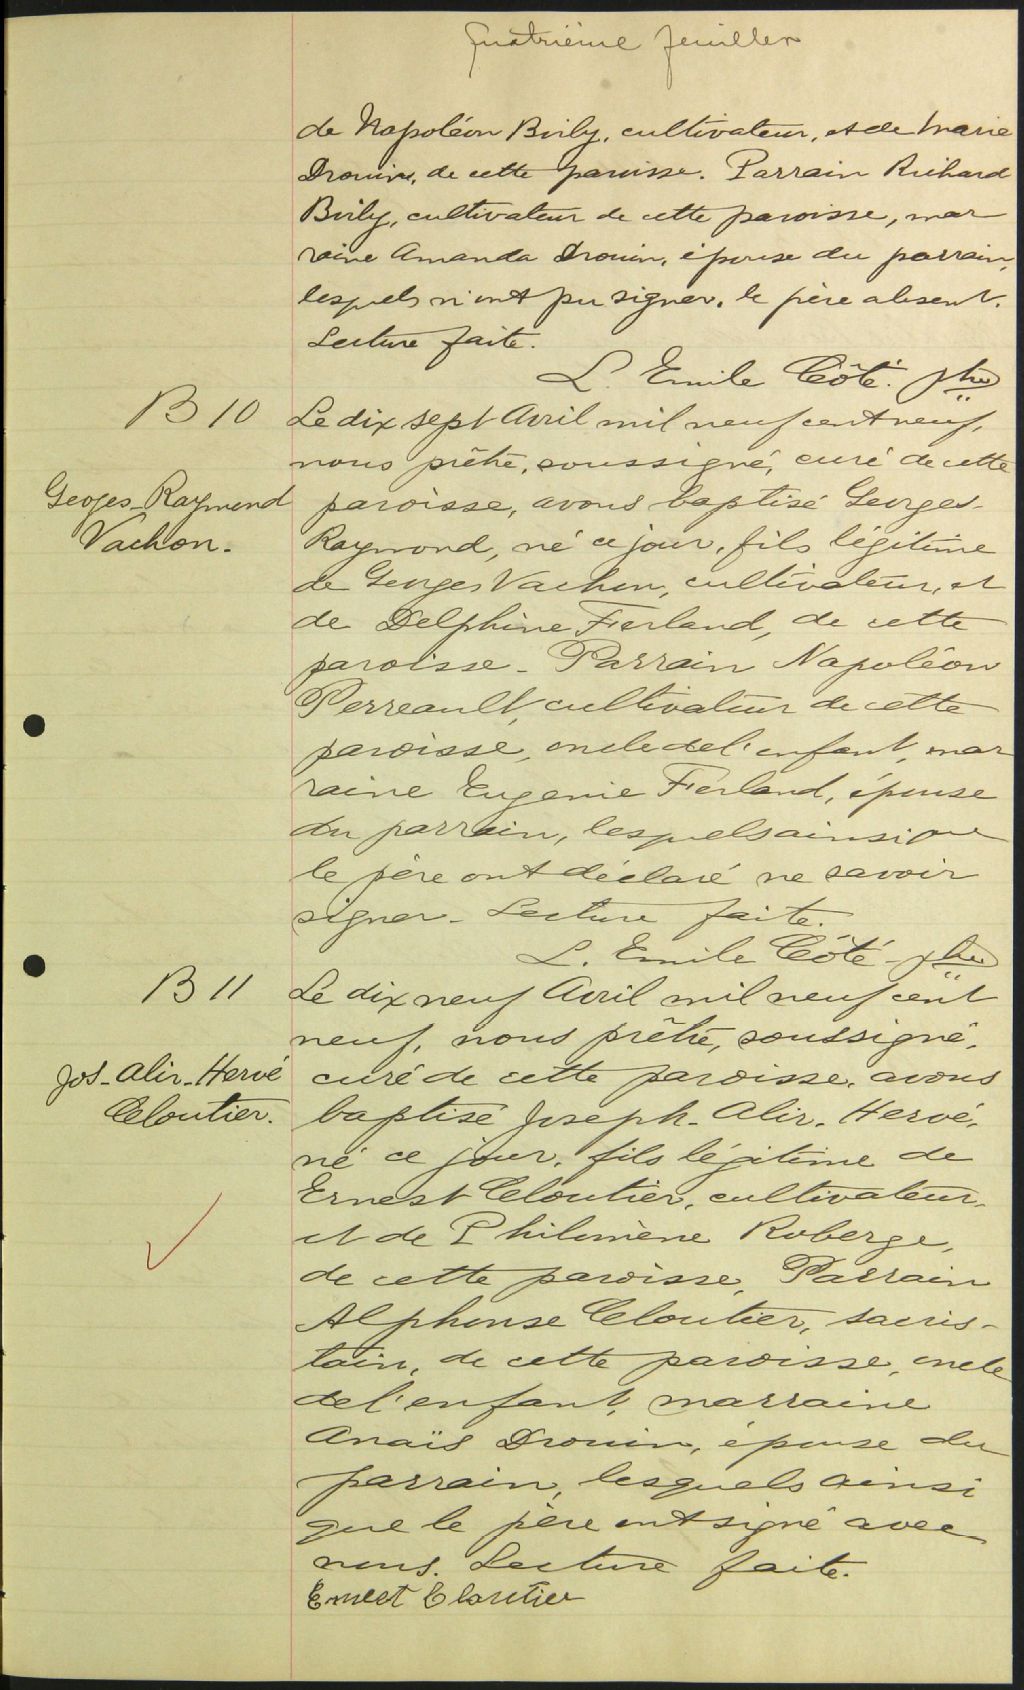 Quatrième feuillet
de Napoléon Bizly, cultivateur, et de Marie
Drouin, de cette paroisse. Parrain Richard
Bizly, cultivateur de cette paroisse, mar
raine Amanda Drouin, épouse du parrain,
lesquels n'ont pu signer, le père absent.
Lecture faite.
L. Emile Côté. ptre
B 10 Le dix sept Avril mil neuf cent neuf,
nous prêtre, soussigné, curé de cette
Geoges-Raymond
Vachon.
paroisse, avons baptisé Georges-
Raymond, né ce jour, fils légitime
de Georges Vachon, cultivateur, et
de Delphine Ferland, de cette
paroisse - Parrain Napoléon
Perreault, cultivateur de cette
paroisse, oncle de l'enfant, mar
raine Eugenie Ferland, épouse
du parrain, lesquels ainsi que
le père ont déclaré ne savoir
signer - Lecture faite.
L. Emile Côté - ptre
B 11 Le dix neuf Avril mil neuf cent
neuf, nous prêtre, soussigné,
Jos-Alir-Hervé
Cloutier.
curé de cette paroisse, avons
baptisé Joseph-Alir-Hervé,
né ce jour, fils légitime de
Ernest Cloutier, cultivateur,
et de Philomène Roberge,
de cette paroisse, Parrain
Alphonse Cloutier, sacris-
tain, de cette paroisse, oncle
de l'enfant, marraine
Anaïs Drouin, épouse du
parrain, lesquels ainsi
que le père ont signé avec
nous. Lecture faite.
Ernest Cloutier